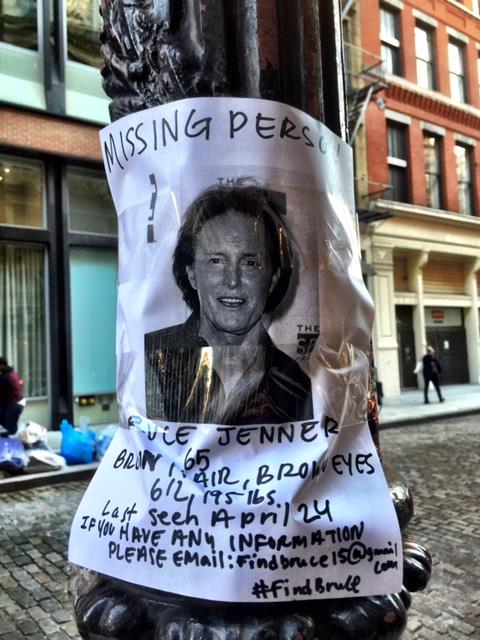 MISSING PERSO
THE
THE
BRUCE JENNER
BROWN HAIR, BROWN EYES
65
6/2, 195 lbs
Last seen April 24
IF YOU HAVE ANY INFORMATION
PLEASE EMAIL: Findbruce15@gmail
com
#FindBruce